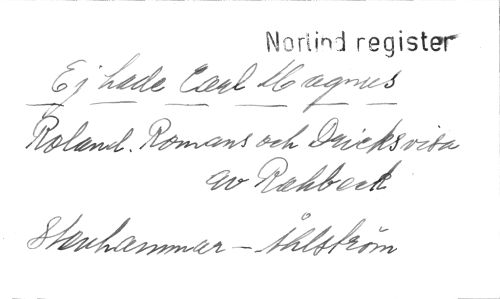 Norlind register
Ej hade Carl Magnus
Roland. Romans och Dricksvisa
av Rahbeck
Stenhammar - Åhlström